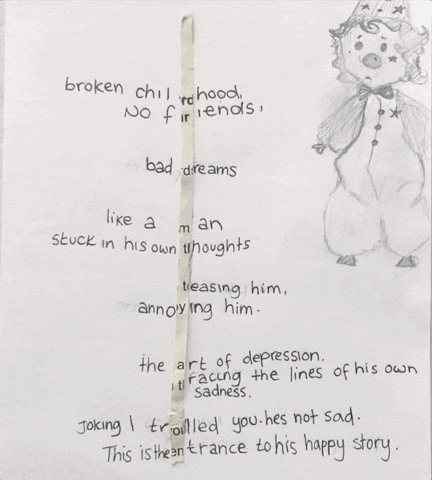 broken childhood,
No friends,
bad dreams
like a man
stuck in his own thoughts
teasing him,
annoying him.
the art of depression.
tracing the lines of his own
sadness.
Joking I trolled you. hes not sad.
This is the entrance to his happy story.